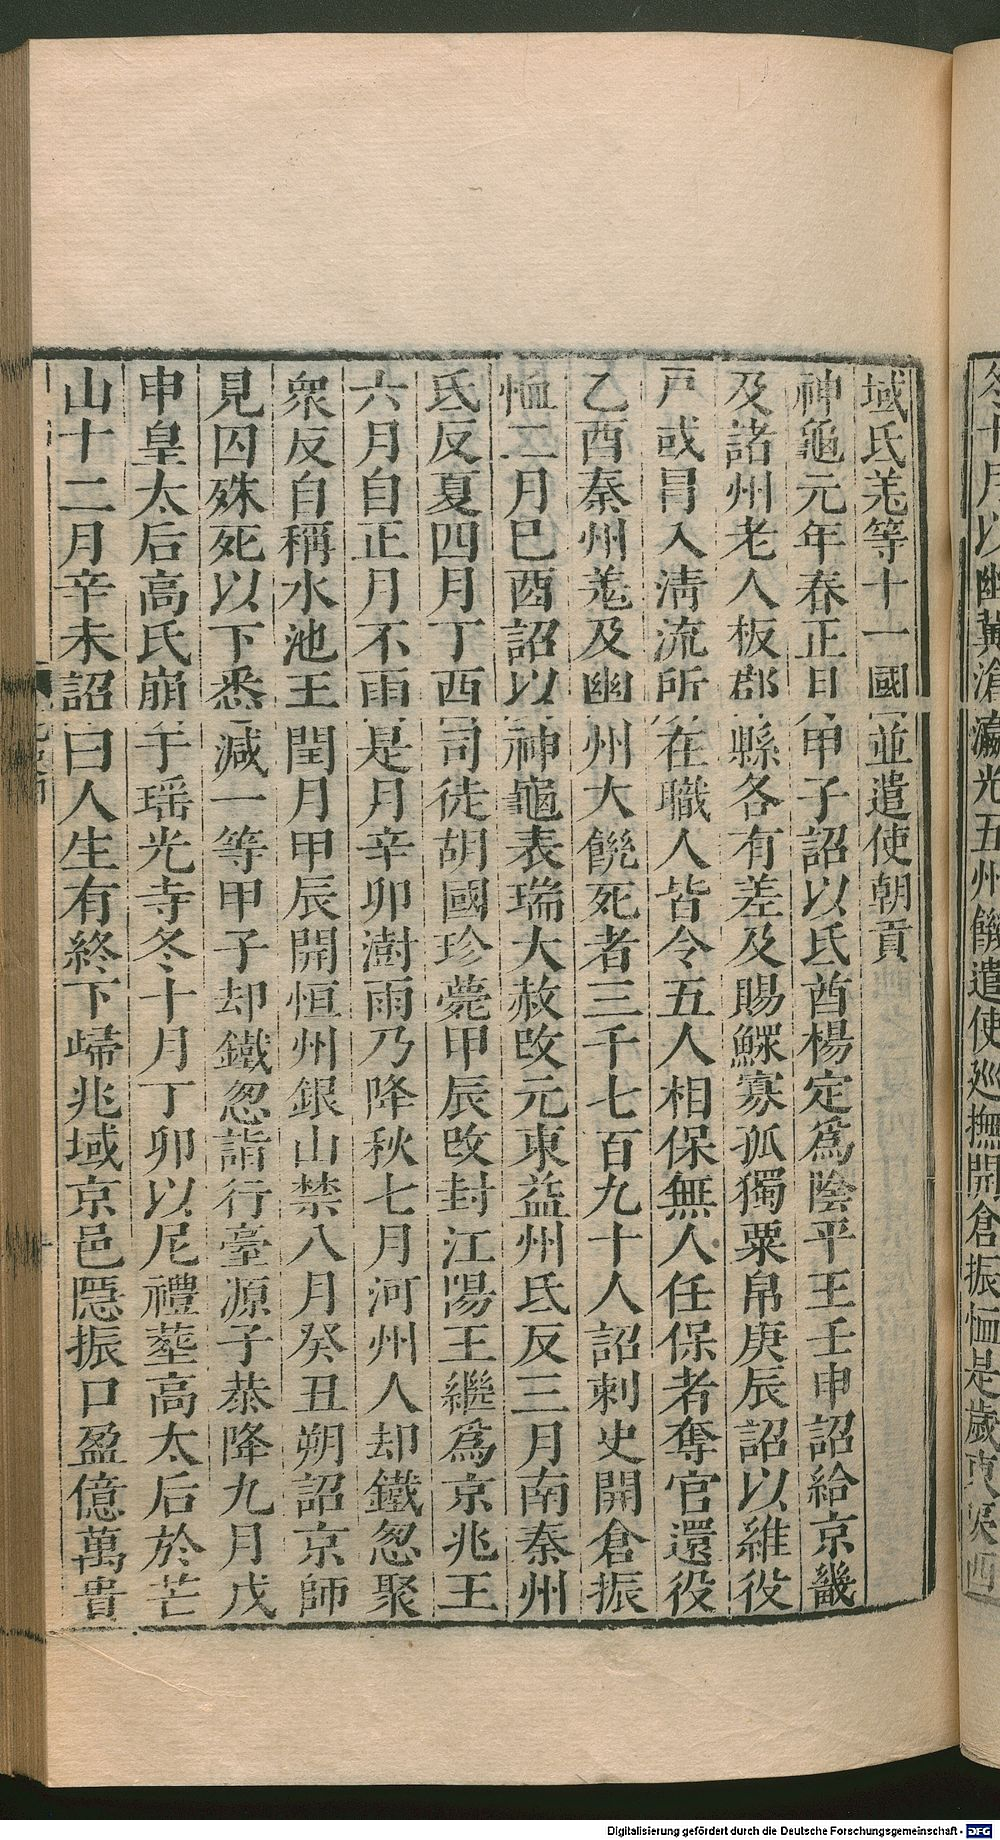 冬十月以幽冀滄瀛光五州饑遣使巡撫開倉振恤是歲東夷西
域氐羌等十一國並遣使朝貢
神龜元年春正月甲子詔以氐酋楊定爲陰平王壬申詔給京畿
及諸州老人板郡縣各有差及賜鰥寡孤獨粟帛庚辰詔以維役
戸或冒入清流所在職人皆令五人相保無人任保者奪官還役
乙酉秦州羌反幽州大饑死者三千七百九十人詔刺史開倉振
恤二月巳酉詔以神龜表瑞大赦改元東益州氐反三月南秦州
氐反夏四月丁酉司徒胡國珍薨甲辰改封江陽王繼爲京兆王
六月自正月不雨是月辛卯澍雨乃降秋七月河州人却鐵忽聚
衆反自稱水池王閏月甲辰開恒州銀山禁八月癸丑朔詔京師
見囚殊死以下悉減一等甲子却鐵忽詣行臺源子恭降九月戊
申皇太后高氏崩于瑶光寺冬十月丁卯以尼禮塟高太后於芒
山十二月辛未詔曰人生有終下歸兆域京邑隱振口盈億萬貴
Digitalisierung gefördert durch die Deutsche Forschungsgemeinschaft - DFG